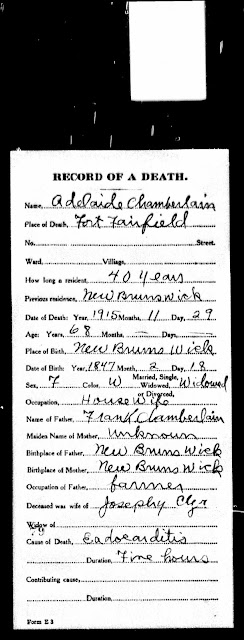 RECORD OF A DEATH.
Name, Adelaide Chamberlain
Place of Death, Fort Fairfield
No. Street.
Ward, Village,
How long a resident, 40 years
Previous residence, New Brunswick
Date of Death: Year, 1915 Months, 11 Day, 29
Age: Years, 68 Months, — Days, —
Place of Birth, New Bruns Wick
Date of Birth: Year, 1847 Month, 2 Day, 18
Sex, F Color, W Married, Single, Widowed, or Divorced, Widowed
Occupation, House Wife
Name of Father, Frank Chamberlain
Maiden Name of Mother, Unknown
Birthplace of Father, New Bruns Wick
Birthplace of Mother, New Bruns Wick
Occupation of Father, farmer
Deceased was wife of Josephy
Widow of
79
Cause of Death, Eadocarditis
Duration, Five hours
Contributing cause,
Duration,
Form E 3